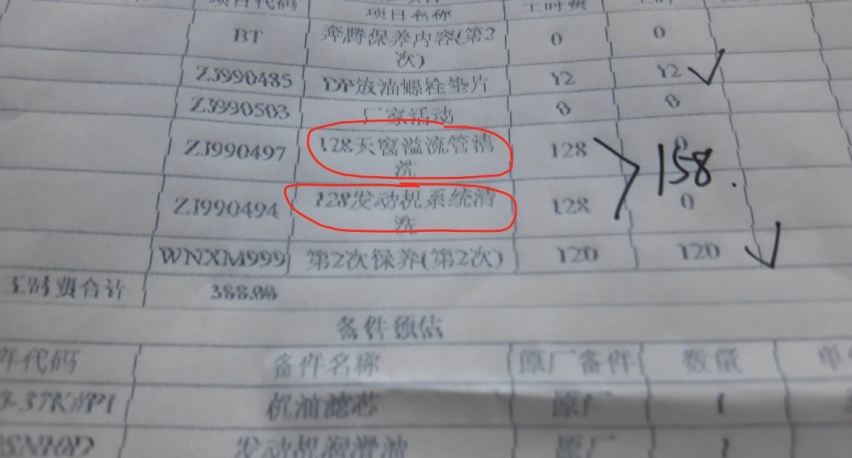 项目代码 项目名称 工时费
BT 奔腾保养内容(第2次) 0 0
ZJ990485 DP放油螺栓垫片 12 12
ZJ990503 厂家活动 0 0
ZJ990497 128天窗溢流管清洗 128 0
158.
ZJ990494 128发动机系统清洗 128 0
WNXM999 第2次保养(第2次) 120 120
工时费合计 388.00
备件预估
件代码 备件名称 原厂备件 数量
机油滤芯 原厂 1
发动机润滑油 原厂 1